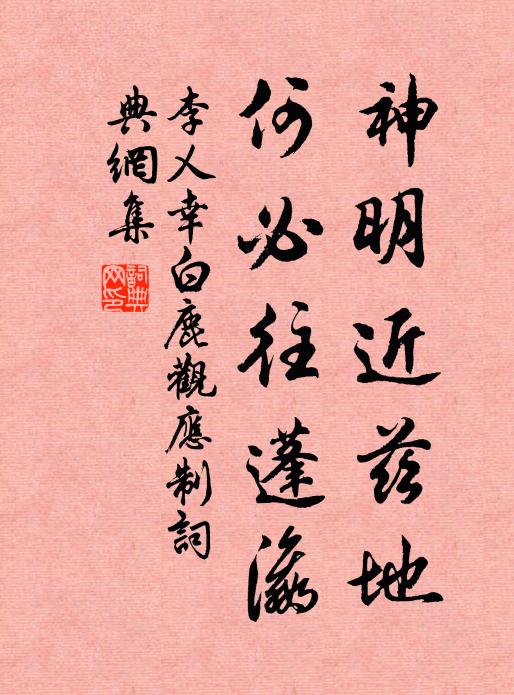 神明近茲地
何必往蓬瀛
李乂幸白鹿觀應制詞
典網集
詞典
网印